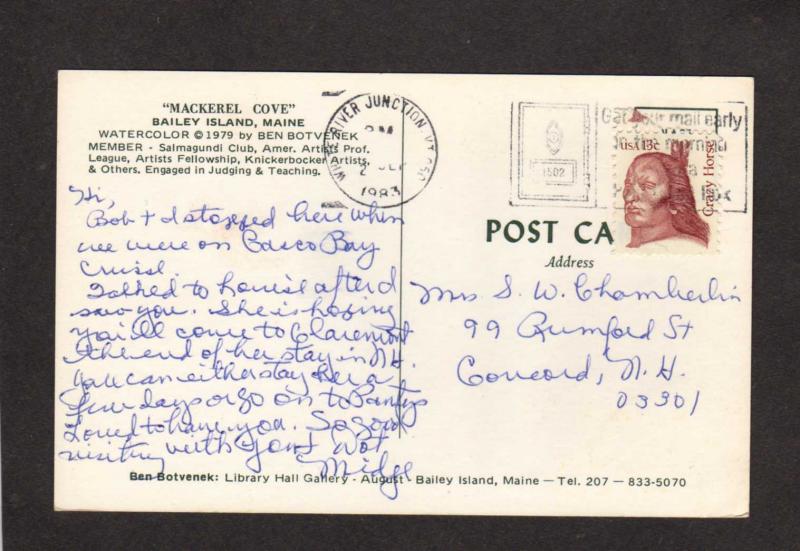 "MACKEREL COVE"
BAILEY ISLAND, MAINE
WATERCOLOR © 1979 by BEN BOTVENEK
MEMBER - Salmagundi Club, Amer. Artists Prof.
League, Artists Fellowship, Knickerbocker Artists,
& Others. Engaged in Judging & Teaching.
WHITE RIVER JUNCTION, VT 050
PM
2 SEP
1983
1502
Get your mail early
in the morning
a
Box
USA 13c
Crazy Horse
POST CA
Address
Hi,
Bob + I stopped here when
we were on Casco Bay
Cruise.
Talked to Louise after I
saw you. She is hoping
you'll come to Claremont
the end of her stay in N.H.
You can either stay here a
few days or go on to
Loved to have you. So good
visiting with you + Dot
Midge
Mrs S. W. Chamberlin
99 Rumford St
Concord, N. H.
03301
Ben Botvenek: Library Hall Gallery - August - Bailey Island, Maine - Tel. 207 - 833-5070